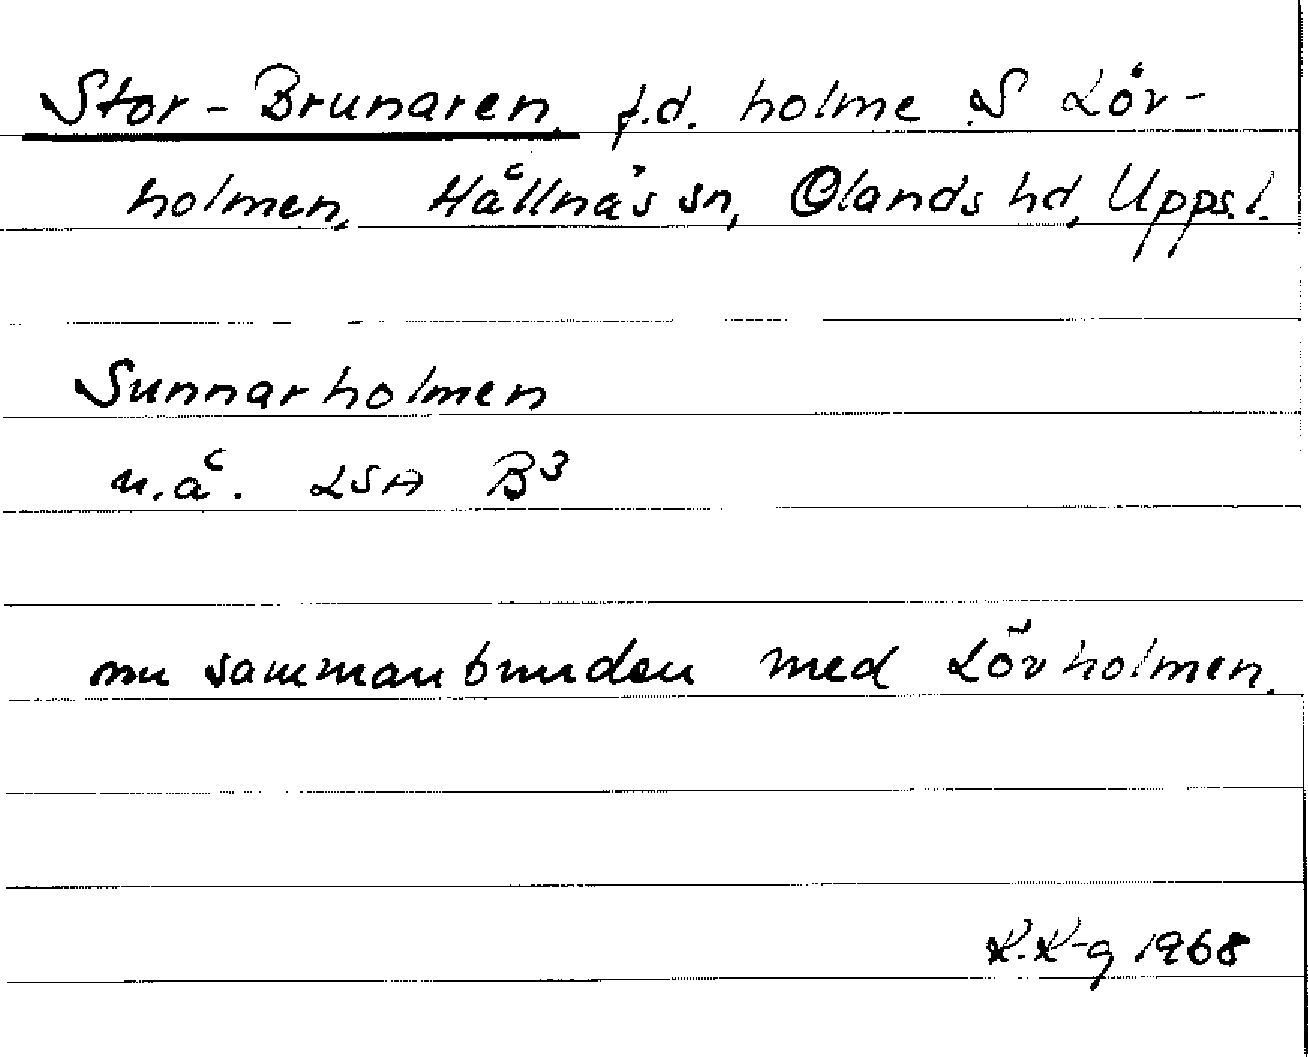 Stor-Brunaren, f.d. holme S Löv-
holmen, Hållnäs sn, Olands hd, Upps.l.
Sunnarholmen
u.å. LSA B3
nu sammanbunden med Lövholmen.
K.K-g 1968